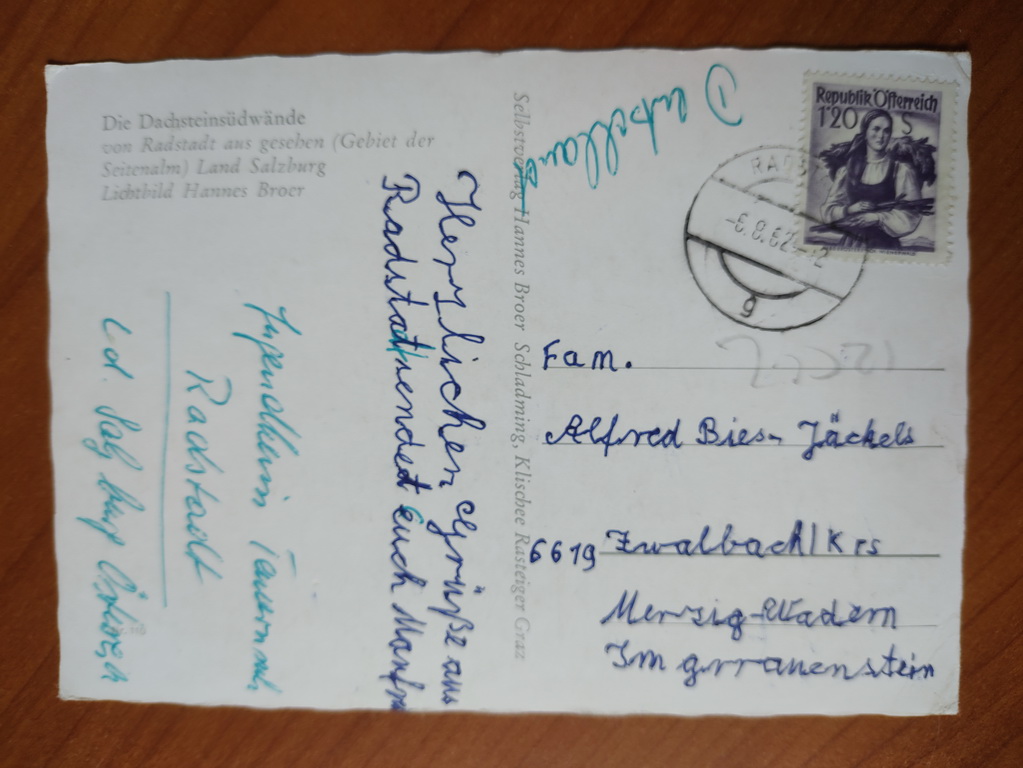 Die Dachsteinsüdwände
von Radstadt aus gesehen (Gebiet der
Seitenalm) Land Salzburg
Lichtbild Hannes Broer
Herzlichen Grüße aus
Radstatt sendet Euch
Jugendheim
Radstadt
Selbstverlag Hannes Broer Schladming, Klischee Rasteiger Graz
Republik Österreich
1'20 S
6.8.62
g
Fam.
Alfred Bies-Jäckels
6619 Zwalbach/Krs
Merzig-Wadern
Im grrauenstein